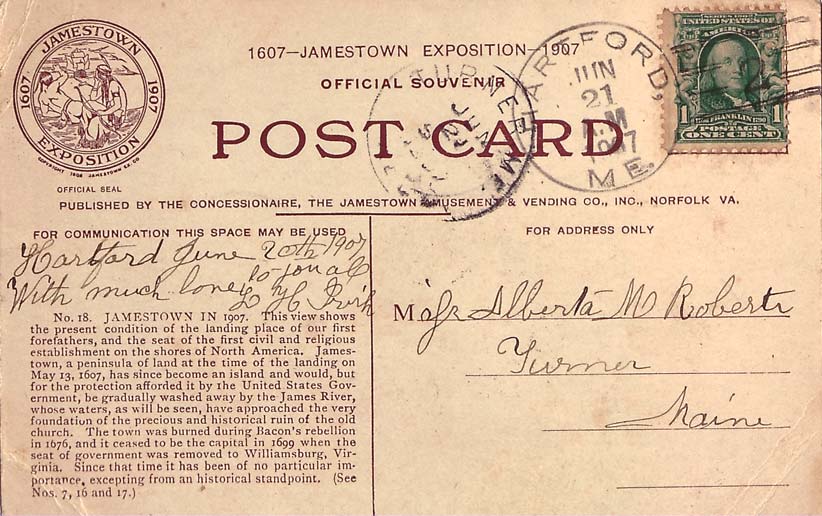 JAMESTOWN
1607 1907
EXPOSITION
COPYRIGHT 1906 JAMESTOWN EX. CO.
OFFICIAL SEAL
1607—JAMESTOWN EXPOSITION—1907
OFFICIAL SOUVENIR
POST CARD
TURNER ME.
ARTFORD,
JUN
21
M
ME.
SERIES 1902
UNITED STATES OF
AMERICA
1 1
FRANKLIN 1790
POSTAGE
ONE CENT
PUBLISHED BY THE CONCESSIONAIRE, THE JAMESTOWN AMUSEMENT & VENDING CO., INC., NORFOLK VA.
FOR COMMUNICATION THIS SPACE MAY BE USED
Hartford June 20th 1907
With much love to you all
L H Irish
No. 18. JAMESTOWN IN 1907. This view shows
the present condition of the landing place of our first
forefathers, and the seat of the first civil and religious
establishment on the shores of North America. James-
town, a peninsula of land at the time of the landing on
May 13, 1607, has since become an island and would, but
for the protection afforded it by the United States Gov-
ernment, be gradually washed away by the James River,
whose waters, as will be seen, have approached the very
foundation of the precious and historical ruin of the old
church. The town was burned during Bacon's rebellion
in 1676, and it ceased to be the capital in 1699 when the
seat of government was removed to Williamsburg, Vir-
ginia. Since that time it has been of no particular im-
portance, excepting from an historical standpoint. (See
Nos. 7, 16 and 17.)
FOR ADDRESS ONLY
Alberta M Roberts
Turner
Maine